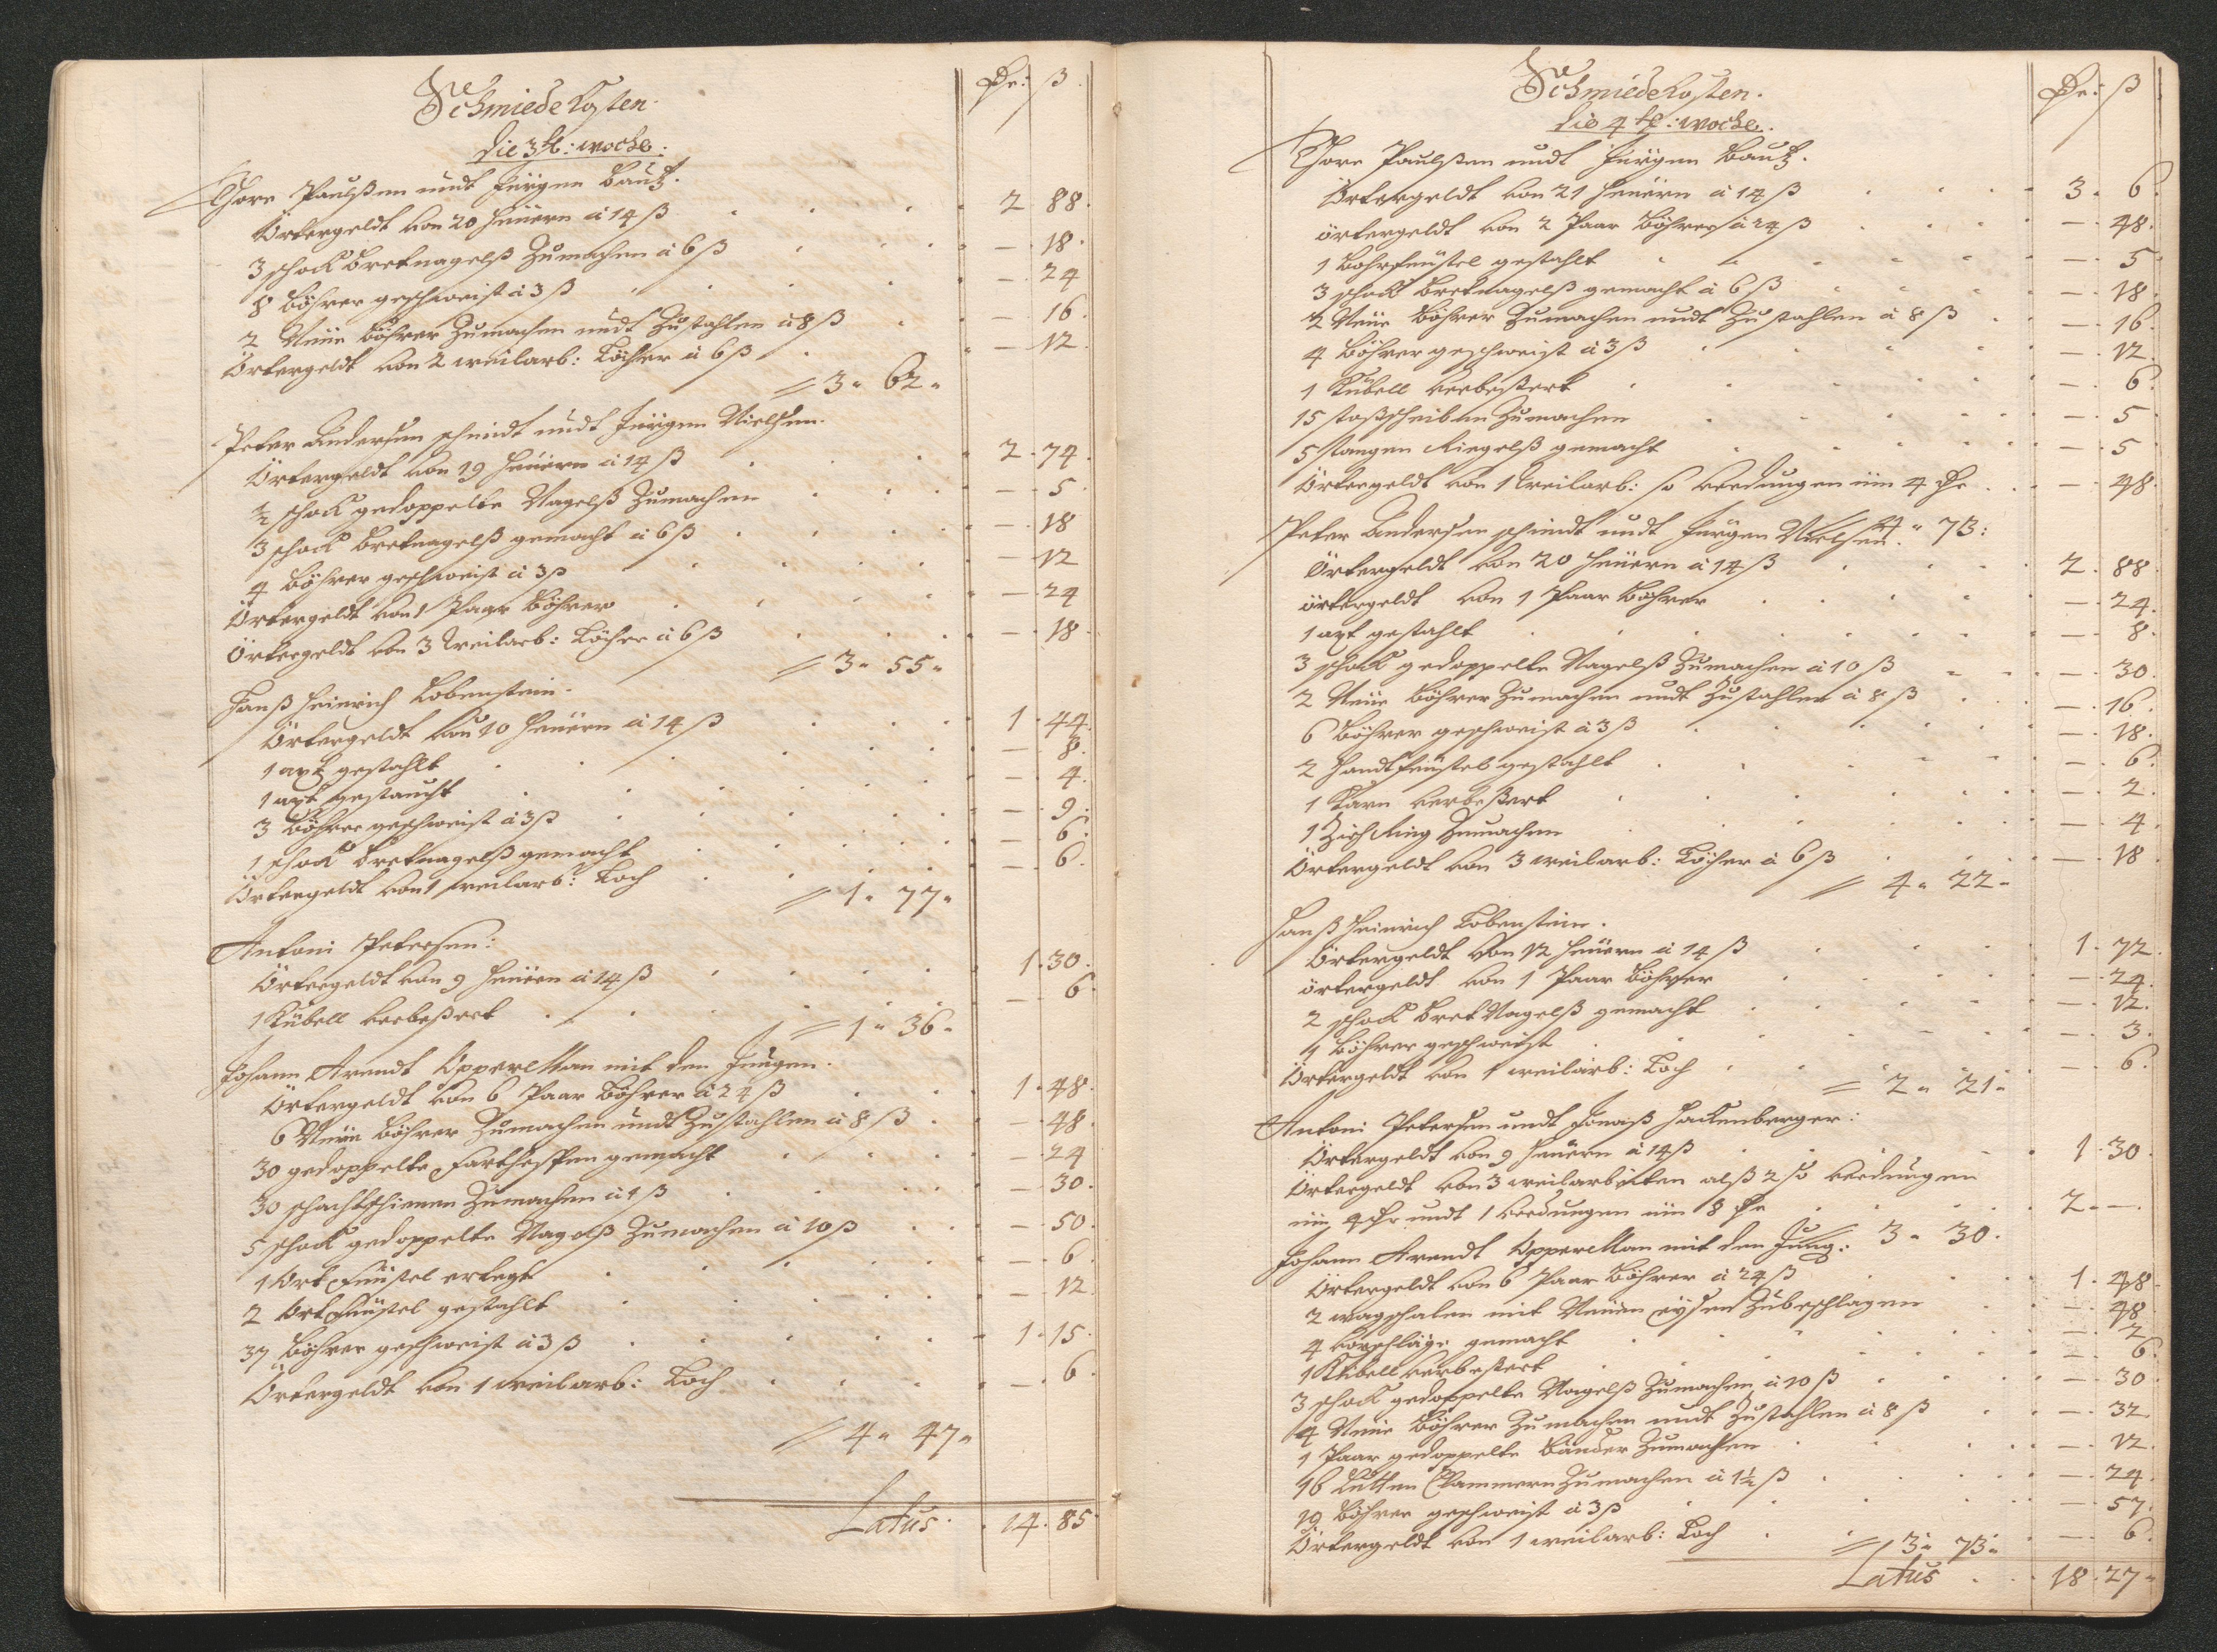 Schmiedekosten.
Rr: ß.
die 3te: woche:
Thore Paulßen undt Jürgen Bautz.
Örtergeldt von 20 heüern à 14 ß 2 88.
3 schock bretnagelß Zumachen à 6 ß — 18.
8 böhrer geschweist à 3 ß — 24
2 Neüe böhrer Zumachen undt Zustahlen à 8 ß — 16.
Örtergeldt von 2 weilarb: Löcher à 6 ß — 12
= 3 " 62 "
Peter Andersen schmidt undt Jürgen Nielsen.
Örtergeldt von 19 heüern à 14 ß 2. 74.
½ schock gedoppelte Nagelß Zumachen — 5.
3 schock bretnagelß gemacht à 6 ß — 18
4 böhrer geschweist à 3 ß — 12
Örtergeldt von 1 Paar böhrer — 24
Örtergeldt von 3 weilarb: Löcher à 6 ß — 18.
= 3 " 55 "
Hanß Heinrich Lobenstein.
Örtergeldt von 10 heüern à 14 ß 1. 44.
1 axt gestahlt — 8.
1 axt gestaucht — 4.
3 böhrer geschweist à 3 ß — 9.
1 schock bretnagelß gemacht — 6.
Örtergeldt von 1 weilarb: Loch — 6.
= 1 " 77 "
Antoni Petersen:
Örtergeldt von 9 heüern à 14 ß 1. 30.
1 Kübell verbeßert — 6.
= 1 " 36 "
Johann Arendt OpperMan mit den Jungen.
Örtergeldt von 6 Paar böhrer à 24 ß 1. 48.
6 Neüe böhrer Zumachen undt Zustahlen à 8 ß — 48.
30 gedoppelte Farthespen gemacht — 24
30 schachtschienen Zumachen à 1 ß — 30.
5 schock gedoppelte Nagelß Zumachen à 10 ß — 50.
1 Ort feüstel erlegt — 6
2 Ort feüstel gestahlt — 12.
37 böhrer geschweist à 3 ß 1. 15.
Örtergeldt von 1 weilarb: Loch — 6.
= 4 " 47 "
Latus 14. 85.
Schmiedekosten.
Rr: ß
die 4te: woche.
Thore Paulßen undt Jürgen Bautz.
Örtergeldt von 21 heüern à 14 ß 3. 6.
örtergeldt von 2 Paar böhrer à 24 ß — 48.
1 bohrfeüstel gestahlt — 5
3 schock bretnagelß gemacht à 6 ß — 18.
2 Neüe böhrer Zumachen undt Zustahlen à 8 ß — 16.
4 böhrer geschweist à 3 ß — 12.
1 Kübell verbeßert — 6.
15 stoßscheiben Zumachen — 5
5 stangen Riegelß gemacht — 5
Örtergeldt von 1 weilarb: so verdungen üm 4 Rr — 48.
= 4 " 73:
Peter Andersen schmidt undt Jürgen Nielsen.
Örtergeldt von 20 heüern à 14 ß 2. 88.
örtergeldt von 1 Paar böhrer — 24.
1 axt gestahlt — 8.
3 schock gedoppelte Nagelß Zumachen à 10 ß — 30.
2 Neüe böhrer Zumachen undt Zustahlen à 8 ß — 16.
6 böhrer geschweist à 3 ß — 18.
2 handtfeüstel gestahlt — 6.
1 Karn verbeßert — 2.
1 Zieh Ring Zumachen — 4
Örtergeldt von 3 weilarb: Löcher à 6 ß — 18.
= 4 " 22 "
Hanß Heinrich Lobenstein.
Örtergeldt von 12 heüern à 14 ß 1. 72.
örtergeldt von 1 Paar böhrer — 24.
2 schock bret Nagelß gemacht — 12.
1 böhrer geschweist — 3.
Örtergeldt von 1 weilarb: Loch — 6.
= 2 " 21 "
Antoni Petersen undt Jonaß Hackenberger:
Örtergeldt von 9 heüern à 14 ß 1. 30.
Örtergeldt von 3 weilarbeiten alß 2 so verdungen
üm 4 Rr undt 1 verdungen üm 8 Rr 2. —.
= 3 " 30.
Johann Arendt OpperMan mit den Jung:
Örtergeldt von 6 Paar böhrer à 24 ß 1. 48.
2 wagschalen mit Neüen eysen Zubeschlagen — 48
4 vorschläge gemacht — 2
1 Kübell verbeßert — 6.
3 schock gedoppelte Nagelß Zumachen à 10 ß — 30
4 Neüe böhrer Zumachen undt Zustahlen à 8 ß — 32.
1 Paar gedoppelte bänder Zumachen — 12.
16 Lutten Clammern Zumachen à 1½ ß — 24.
19 böhrer geschweist à 3 ß — 57.
Örtergeldt von 1 weilarb: Loch — 6.
= 3 " 73 "
Latus 18. 27 "